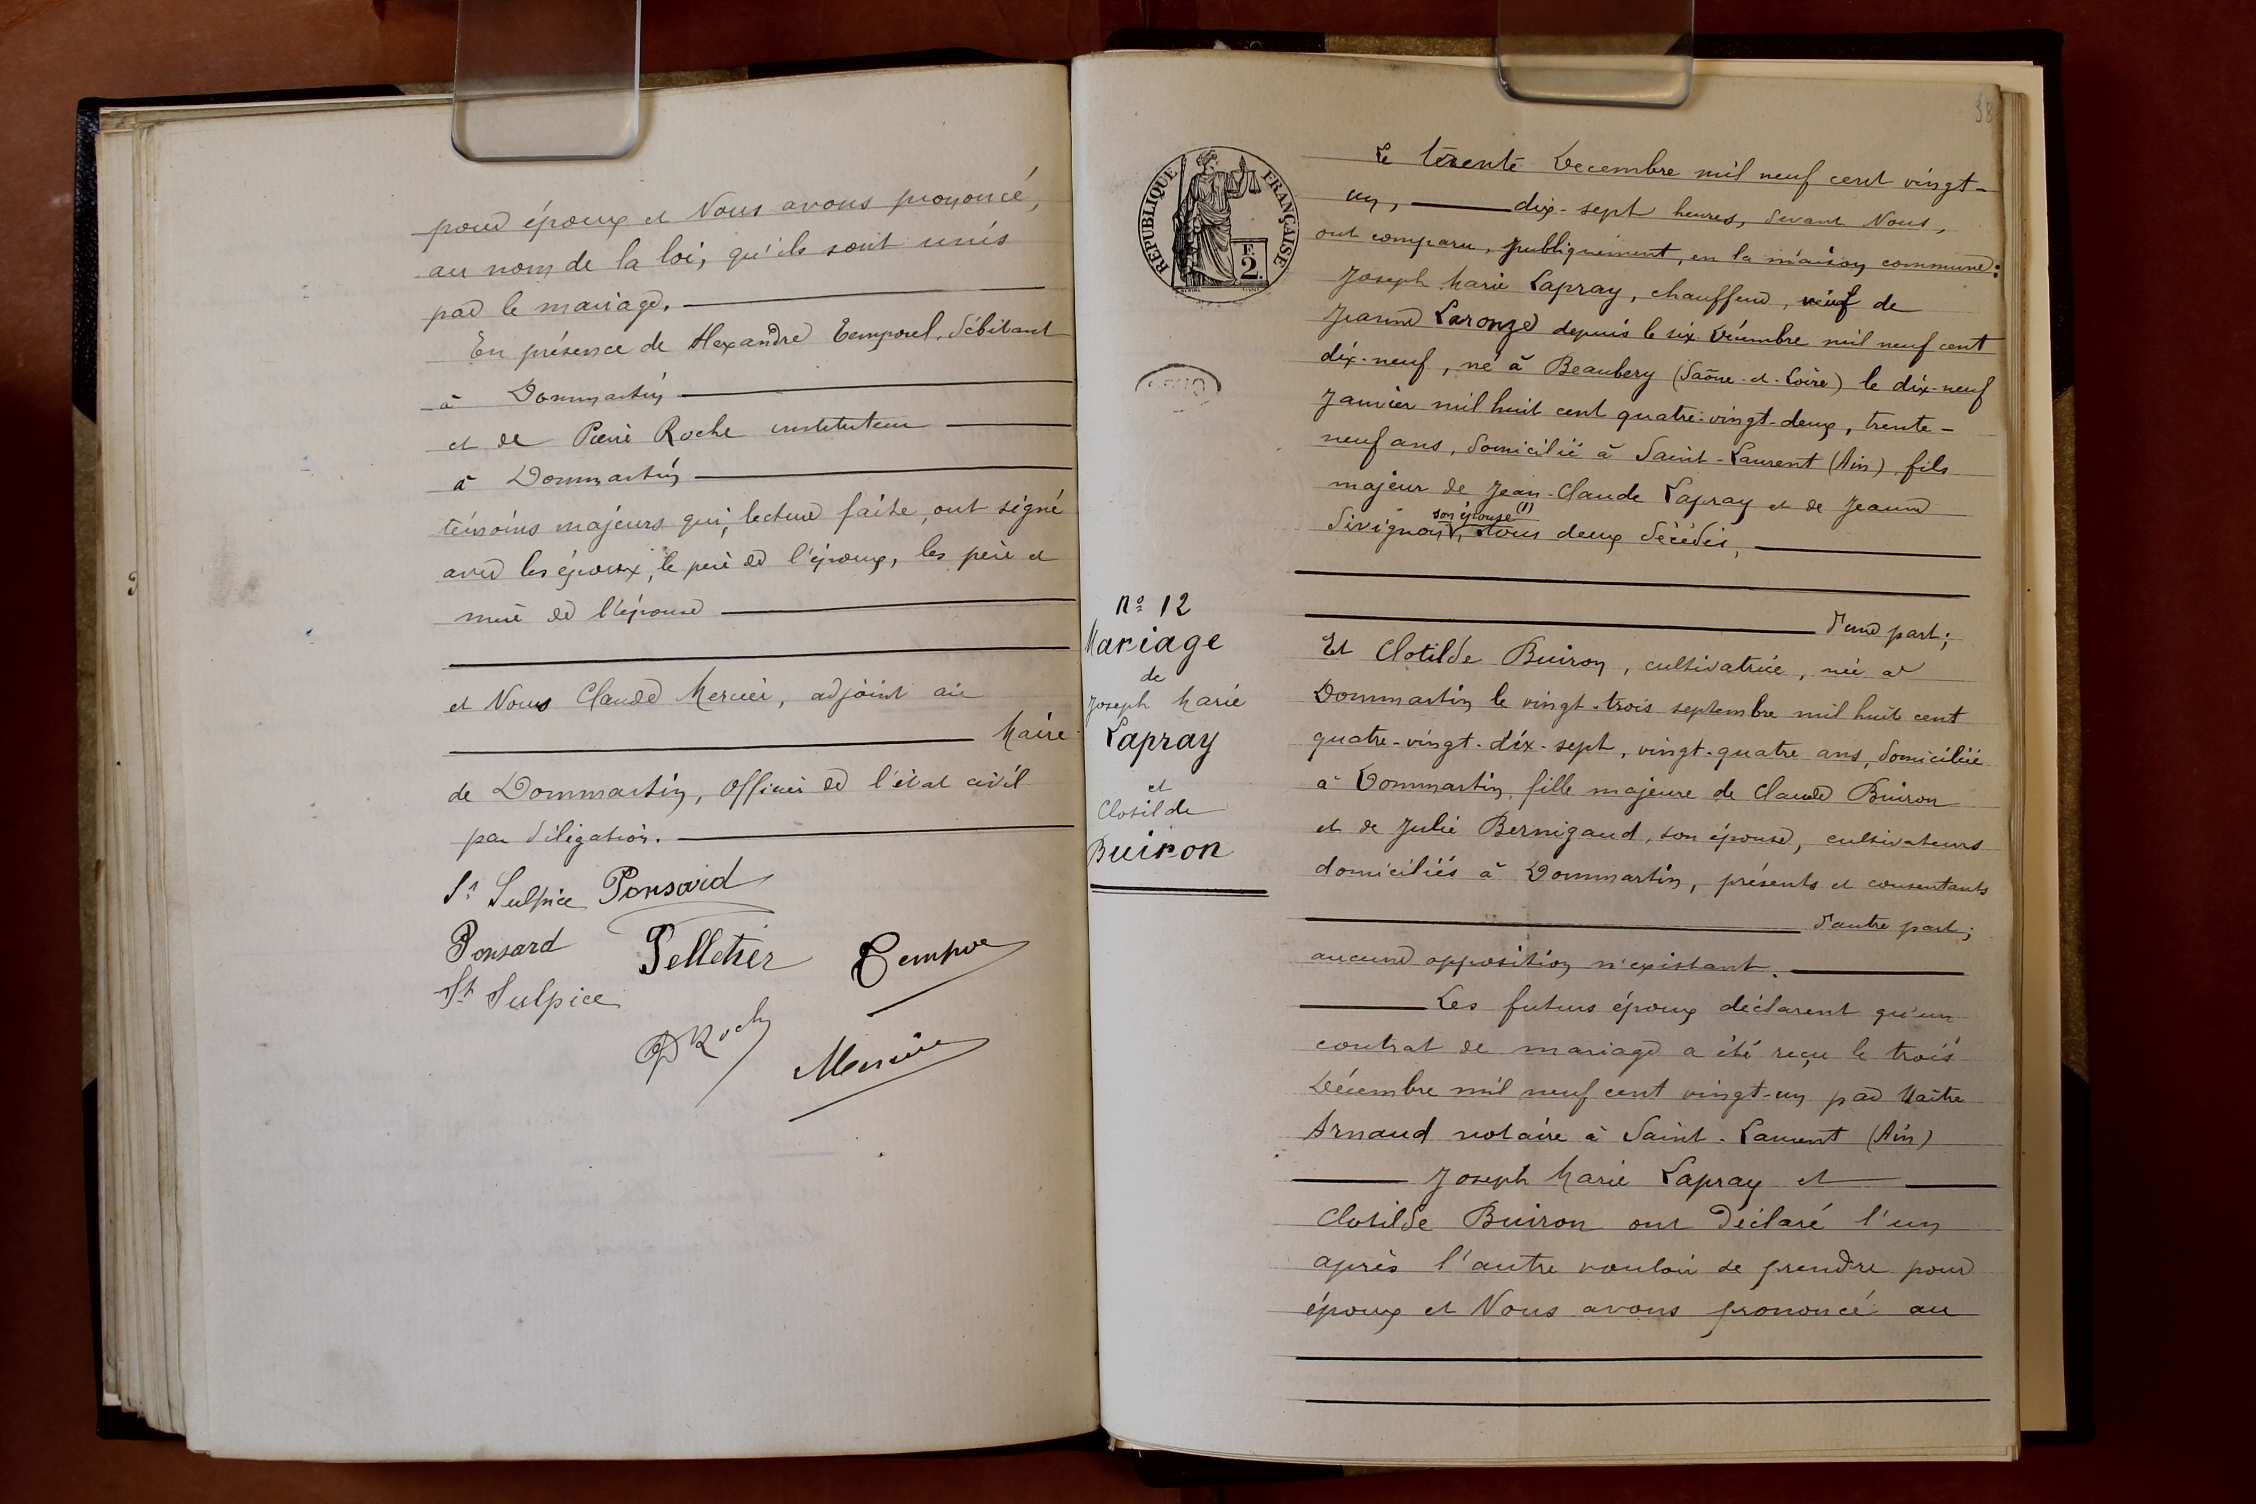 pour époux et Nous avons prononcé,
au nom de la loi, qu'ils sont unis
par le mariage.
En présence de Alexandre Temporel, débitant
à Dommartin
et de Pierre Roche instituteur
à Dommartin
témoins majeurs qui, lecture faite, ont signé
avec les époux, le père de l'époux, les père et
mère de l'épouse
et Nous Claude Mercier, adjoint au
Maire
de Dommartin, Officier de l'état civil
par délégation.
St Sulpice Ponsard
Ponsard Pelletier
St Sulpice
P Roche
Mercier
38
RÉPUBLIQUE FRANÇAISE
2 F.
Le trente Decembre mil neuf cent vingt-
un, dix-sept heures, devant Nous,
ont comparu, publiquement, en la maison commune:
Joseph Marie Lapray, chauffeur, veuf de
Jeanne Laronze depuis le six Décembre mil neuf cent
dix-neuf, né à Beaubery (Saône-et-Loire) le dix-neuf
Janvier mil huit cent quatre-vingt-deux, trente-
neuf ans, domicilié à Saint-Laurent (Ain), fils
majeur de Jean-Claude Lapray et de Jeanne
son épouse (1)
Sivignon, tous deux décédés,
d'une part;
Nº 12
Mariage
de
Joseph Marie
Lapray
et
Clotilde
Buiron
Et Clotilde Buiron, cultivatrice, née à
Dommartin le vingt-trois septembre mil huit cent
quatre-vingt-dix-sept, vingt-quatre ans, domiciliée
à Dommartin, fille majeure de Claude Buiron
et de Julie Bernigaud, son épouse, cultivateurs
domiciliés à Dommartin, présents et consentants
d'autre part;
aucune opposition n'existant.
Les futurs époux déclarent qu'un
contrat de mariage a été reçu le trois
Décembre mil neuf cent vingt-un par Maître
Arnaud notaire à Saint-Laurent (Ain)
Joseph Marie Lapray et
Clotilde Buiron ont déclaré l'un
après l'autre vouloir se prendre pour
époux et Nous avons prononcé au